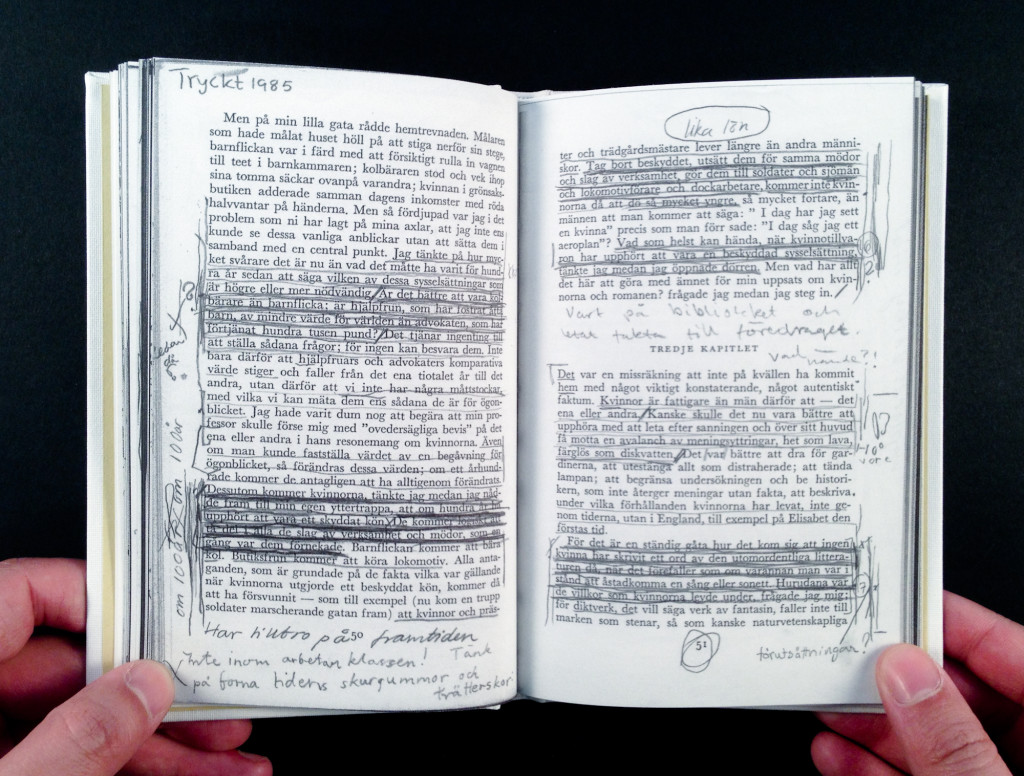 Tryckt 1985
Men på min lilla gata rådde hemtrevnaden. Målaren
som hade målat huset höll på att stiga nerför sin stege,
barnflickan var i färd med att försiktigt rulla in vagnen
till teet i barnkammaren; kolbäraren stod och vek ihop
sina tomma säckar ovanpå varandra; kvinnan i grönsaks-
butiken adderade samman dagens inkomster med röda
halvvantar på händerna. Men så fördjupad var jag i det
problem som ni har lagt på mina axlar, att jag inte ens
kunde se dessa vanliga anblickar utan att sätta dem i
samband med en central punkt. Jag tänkte på hur myc-
ket svårare det är nu än vad det måtte ha varit för hund-
ra år sedan att säga vilken av dessa sysselsättningar som
är högre eller mer nödvändig. Är det bättre att vara kol-
bärare än barnflicka; är hjälpfrun, som har fostrat åtta
barn, av mindre värde för världen än advokaten, som har
förtjänat hundra tusen pund? Det tjänar ingenting till
att ställa sådana frågor; för ingen kan besvara dem. Inte
bara därför att hjälpfruars och advokaters komparativa
värde stiger och faller från det ena tiotalet år till det
andra, utan därför att vi inte har några måttstockar,
med vilka vi kan mäta dem ens sådana de är för ögon-
blicket. Jag hade varit dum nog att begära att min pro-
fessor skulle förse mig med "ovedersägliga bevis" på det
ena eller andra i hans resonemang om kvinnorna. Även
om man kunde fastställa värdet av en begåvning för
ögonblicket, så förändras dessa värden; om ett århund-
rade kommer de antagligen att ha alltigenom förändrats.
Dessutom kommer kvinnorna, tänkte jag medan jag nåd-
de fram till min egen yttertrappa, att om hundra år ha
upphört att vara ett skyddat kön. De kommer
att ta del i alla de slag av verksamhet och mödor, som en
gång var dem förnekade. Barnflickan kommer att bära
kol. Butiksfrun kommer att köra lokomotiv. Alla anta-
ganden, som är grundade på de fakta vilka var gällande
när kvinnorna utgjorde ett beskyddat kön, kommer då
att ha försvunnit — som till exempel (nu kom en trupp
soldater marscherande gatan fram) att kvinnor och präs-
om 100 år? om 10 år
50
Har tilltro på framtiden
Inte inom arbetarklassen! Tänk
på forna tiders skurgummor och
trätterskor
lika lön
ter och trädgårdsmästare lever längre än andra männi-
skor. Tag bort beskyddet, utsätt dem för samma mödor
och slag av verksamhet, gör dem till soldater och sjömän
och lokomotivförare och dockarbetare, kommer inte kvin-
norna då att dö så mycket yngre, så mycket fortare, än
männen att man kommer att säga: " I dag har jag sett
en kvinna" precis som man förr sade: "I dag såg jag ett
aeroplan"? Vad som helst kan hända, när kvinnotillva-
ron har upphört att vara en beskyddad sysselsättning,
tänkte jag medan jag öppnade dörren. Men vad har allt
det här att göra med ämnet för min uppsats om kvin-
norna och romanen? frågade jag medan jag steg in.
Vart på biblioteket och
letar fakta till föredraget.
TREDJE KAPITLET
Vad hände?!
Det var en missräkning att inte på kvällen ha kommit
hem med något viktigt konstaterande, något autentiskt
faktum. Kvinnor är fattigare än män därför att — det
ena eller andra. Kanske skulle det nu vara bättre att
upphöra med att leta efter sanningen och över sitt huvud
få motta en avalanch av meningsyttringar, het som lava,
färglös som diskvatten. Det var bättre att dra för gar-
dinerna, att utestänga allt som distraherade; att tända
lampan; att begränsa undersökningen och be histori-
kern, som inte återger meningar utan fakta, att beskriva
under vilka förhållanden kvinnorna har levat, inte ge-
nom tiderna, utan i England, till exempel på Elisabet den
förstas tid.
För det är en ständig gåta hur det kom sig att ingen
kvinna har skrivit ett ord av den utomordentliga littera-
turen då, när det förefaller som om varannan man var i
stånd att åstadkomma en sång eller sonett. Hurudana var
de villkor som kvinnorna levde under, frågade jag mig;
för diktverk, det vill säga verk av fantasin, faller inte till
marken som stenar, så som kanske naturvetenskapliga
51
förutsättningar?